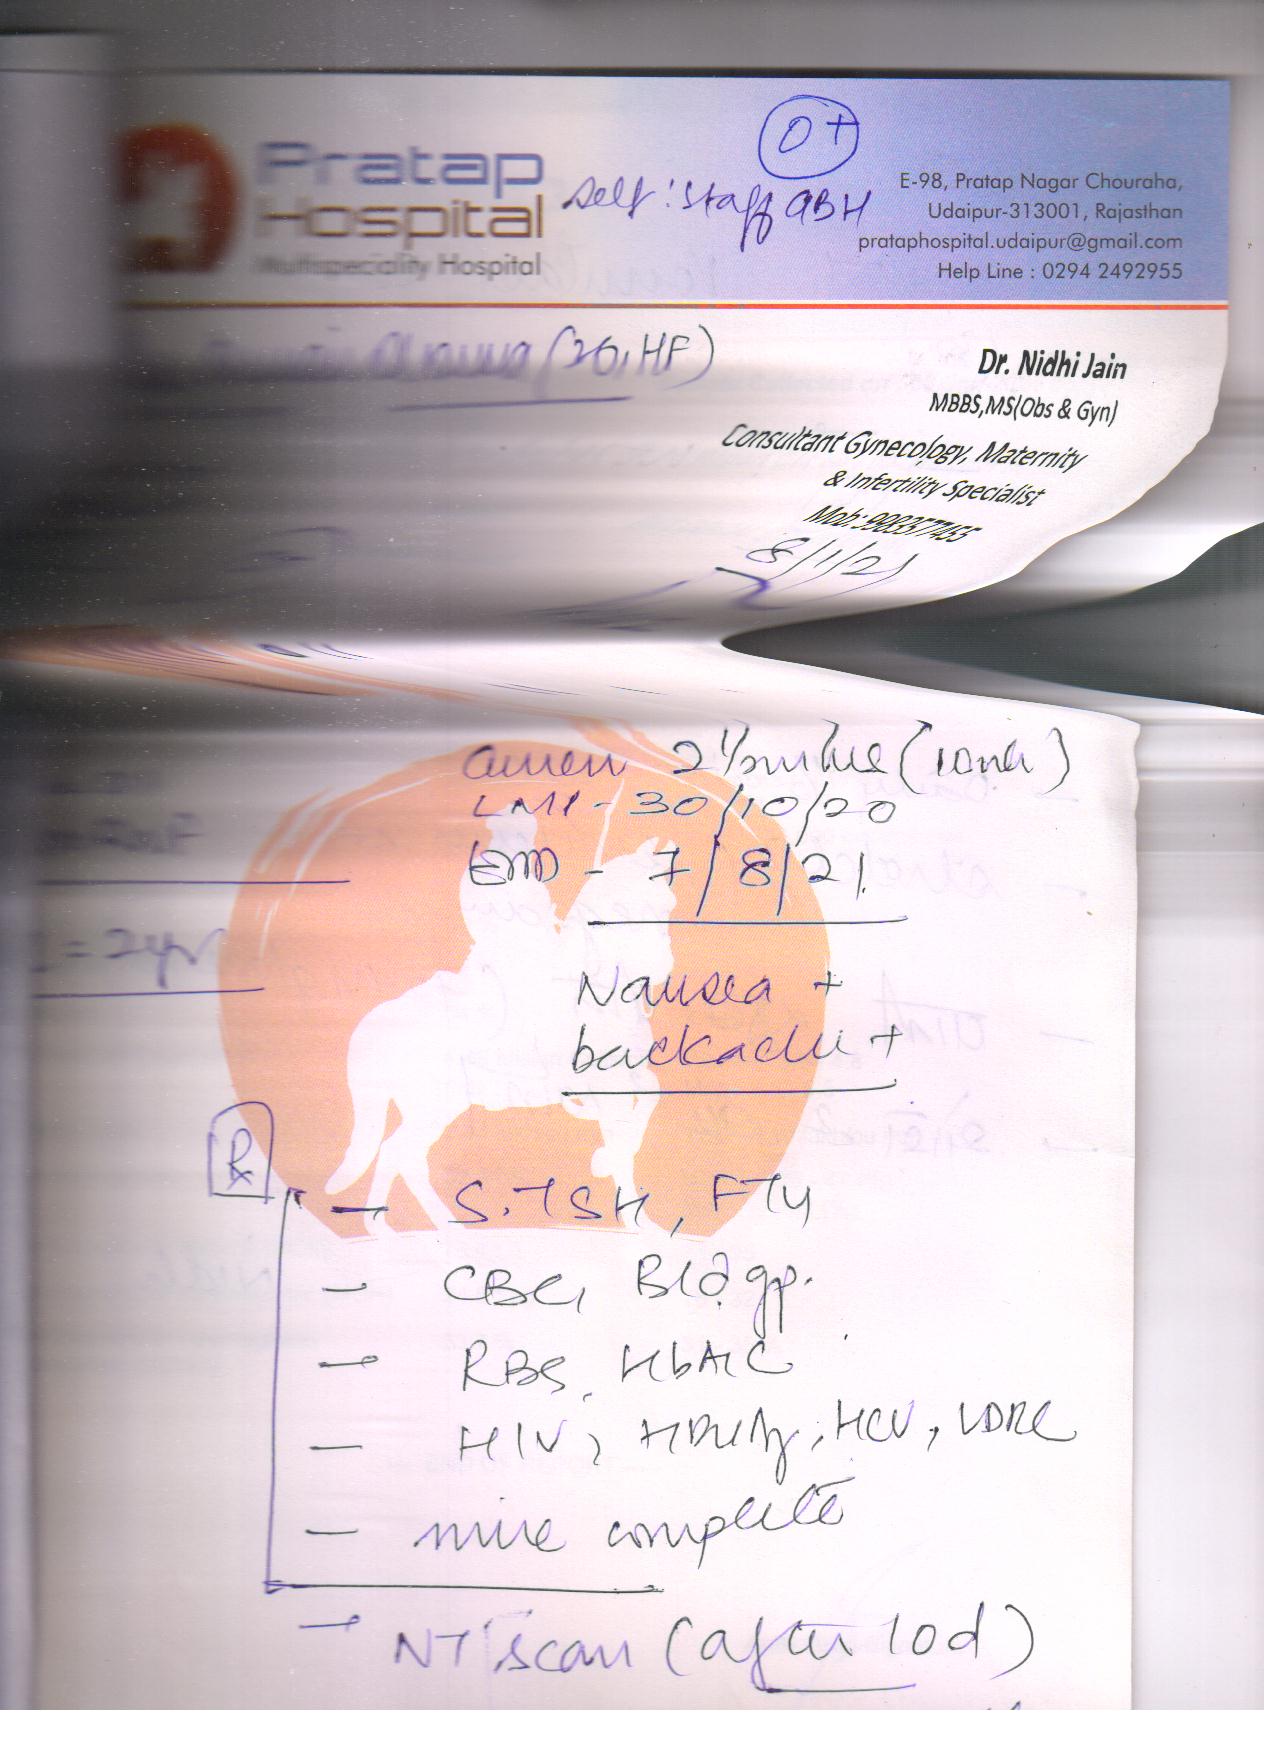 O+
Pratap
Hospital
Multispeciality Hospital
Self : Staff GBH
E-98, Pratap Nagar Chouraha,
Udaipur-313001, Rajasthan
prataphospital.udaipur@gmail.com
Help Line : 0294 2492955
(26, HF)
Dr. Nidhi Jain
MBBS,MS(Obs & Gyn)
Consultant Gynecology, Maternity
& Infertility Specialist
Mob:
8/1/21
Amen 2½
LMP - 30/10/20
EDD - 7/8/21
= 2yr
Nausea +
backache +
Rx
- S. TSH, FT4
- CBC, Bld gp.
- RBS, HbA1C
- HIV, HBsAg, HCV, VDRL
- complete
- NT scan (after 10d)